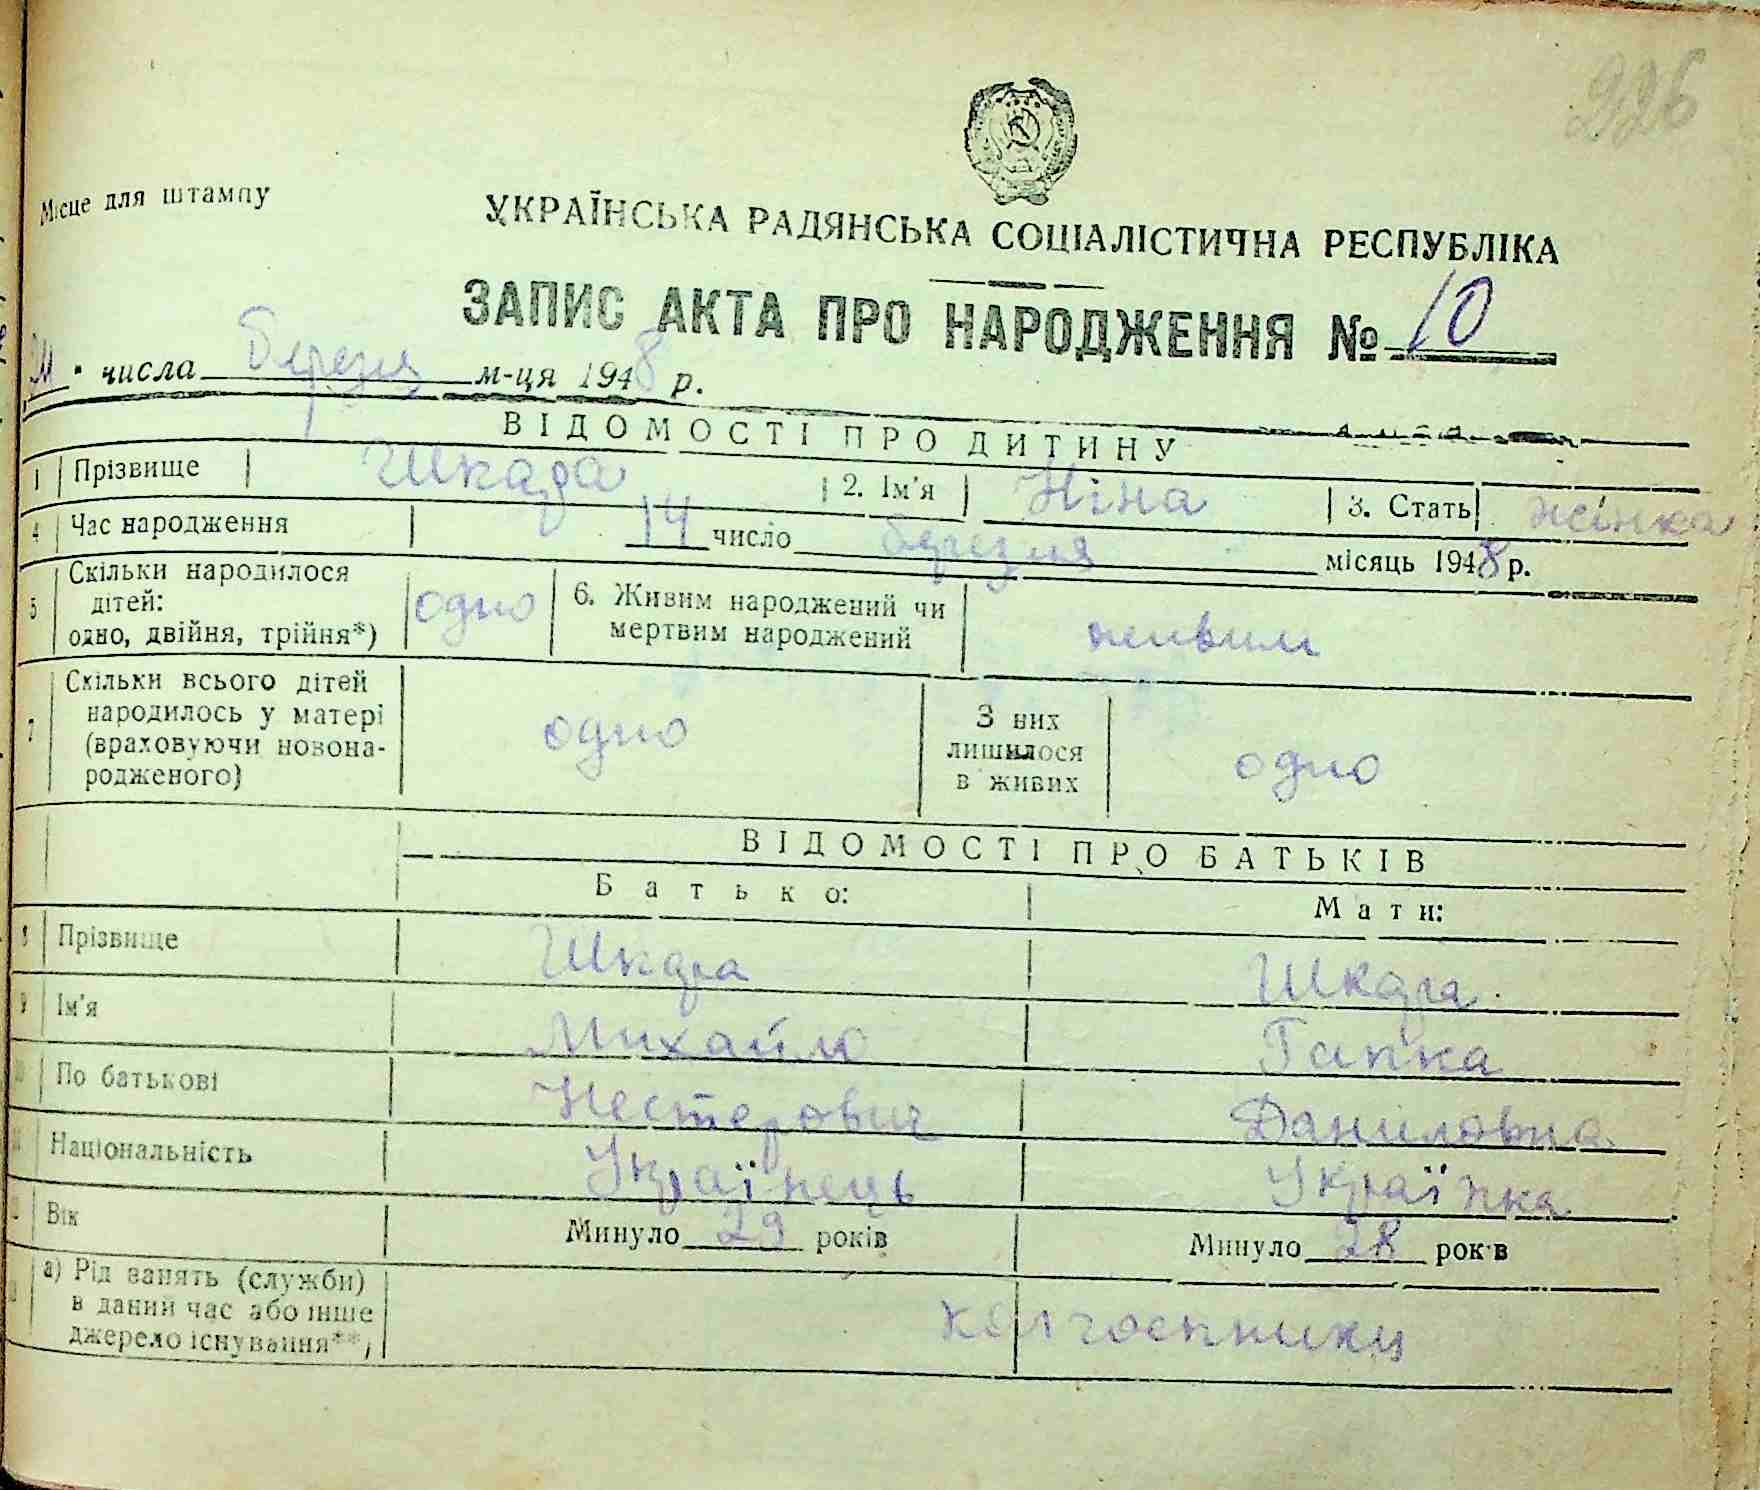 226
Місце для штампу
УКРАЇНСЬКА РАДЯНСЬКА СОЦІАЛІСТИЧНА РЕСПУБЛІКА
ЗАПИС АКТА ПРО НАРОДЖЕННЯ № 10
числа березня м-ця 1948 р.
ВІДОМОСТІ ПРО ДИТИНУ
1 Прізвище Шкара 2. Ім'я Ніна 3. Стать жінка
4 Час народження 14 число березня місяць 1948 р.
5 Скільки народилося дітей:
одно, двійня, трійня*) одно 6. Живим народжений чи
мертвим народжений живим
7 Скільки всього дітей
народилось у матері
(враховуючи новона-
родженого) одно З них
лишилося
в живих одно
ВІДОМОСТІ ПРО БАТЬКІВ
Батько: Мати:
8 Прізвище Шкара Шкара
9 Ім'я Михайло Гапка
10 По батькові Нестерович Даниловна
Національність Українець Українка
Вік Минуло 29 років Минуло 28 років
а) Рід занять (служби)
в даний час або інше
джерело існування**) колгоспники